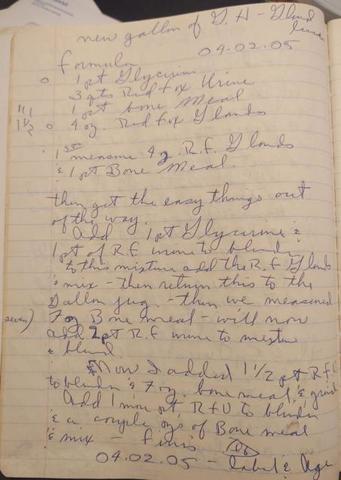 new gallon of G. H - Gland
Lure
04.02.05
Formula
o 1 pt Glycerine
3 qts Red Fox Urine
111 1 pt bone Meal
1 1/2 o 4 oz. Red Fox Glands
1st measure 4 oz. R.F. Glands
& 1 pt Bone Meal.
then get the easy things out
of the way.
Add 1 pt Glycerine &
1 pt of R.F urine to blender
to this mixture add the R.F Glands
& mix - then return this to the
Gallon jug. - then we measured
seven) 7 oz Bone meal - will now
add 2 pt R.F urine to mixture
& blend
Now I added 1 1/2 pt R.F U
to blender & 7 oz. bone meal, & grind
Add 1 more pt, R F U to blender
& a couple ozs of Bone meal
& mix - finis
04.02.05 - label & Age